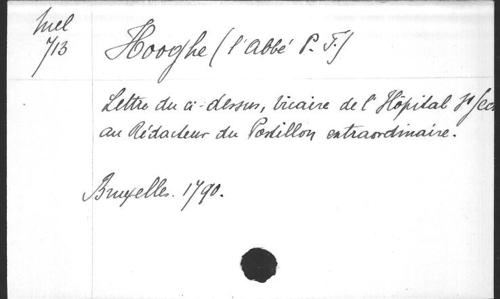 Mel
713
Hooghe (l'abbé P. J.)
Lettre du ci-dessus, vicaire de l'Hôpital St
au Rédacteur du Postillon extraordinaire.
Bruxelles. 1790.